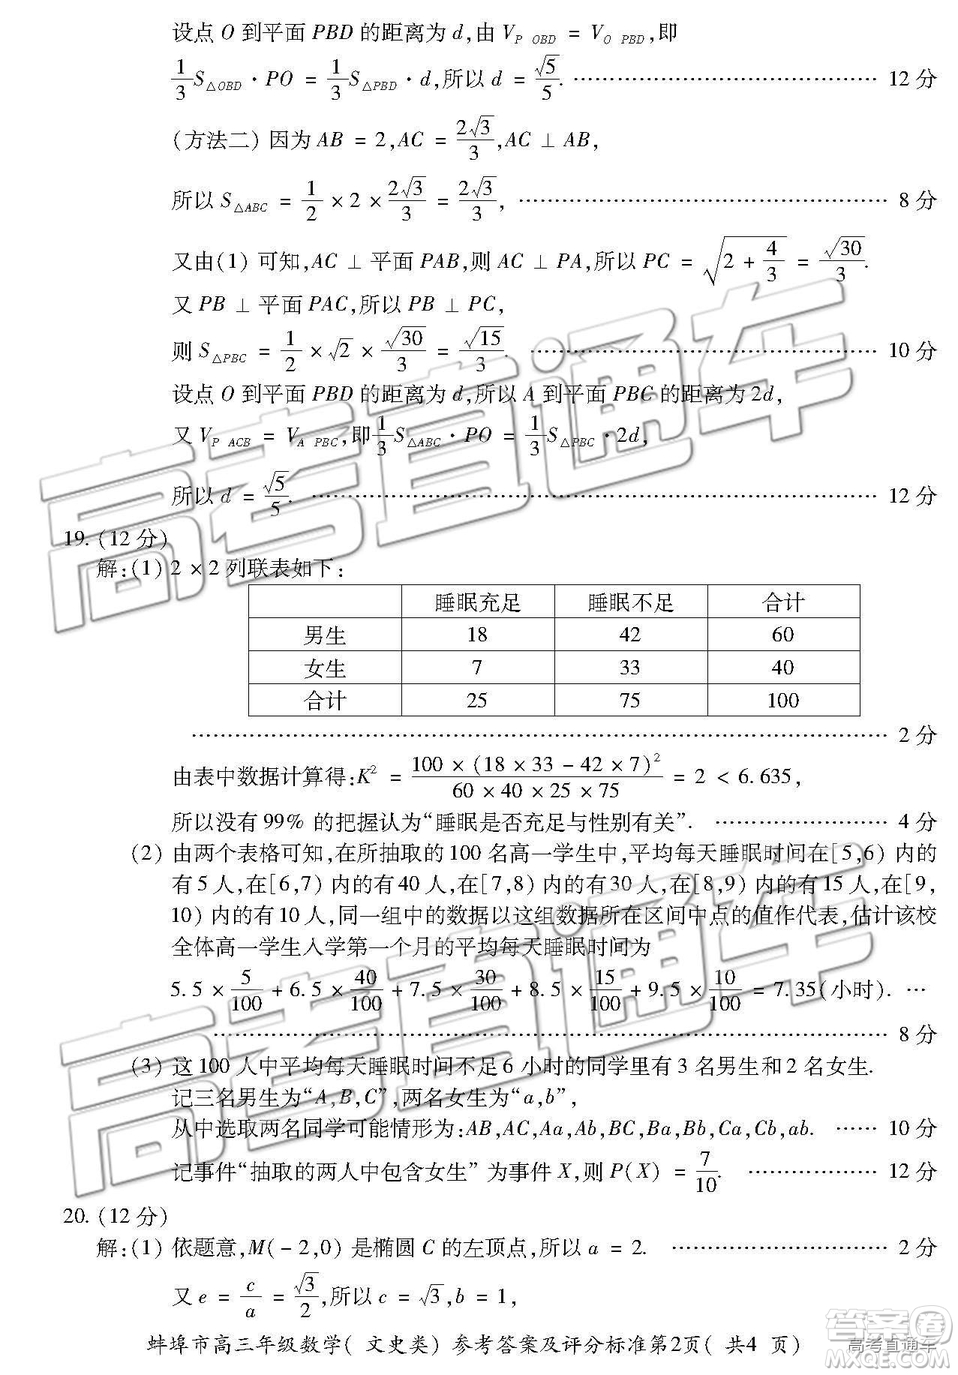 设点 O 到平面 PBD 的距离为 d,由 V_{P OBD} = V_{O PBD},即
1/3 S_{△OBD}·PO = 1/3 S_{△PBD}·d,所以 d = √5/5. …………………………………… 12 分
(方法二) 因为 AB = 2,AC = 2√3/3,AC ⊥ AB,
所以 S_{△ABC} = 1/2 × 2 × 2√3/3 = 2√3/3, …………………………………… 8 分
又由(1) 可知,AC ⊥ 平面 PAB,则 AC ⊥ PA,所以 PC = √(2 + 4/3) = √30/3.
又 PB ⊥ 平面 PAC,所以 PB ⊥ PC,
则 S_{△PBC} = 1/2 × √2 × √30/3 = √15/3. …………………………………… 10 分
设点 O 到平面 PBD 的距离为 d,所以 A 到平面 PBC 的距离为 2d,
又 V_{P ACB} = V_{A PBC},即 1/3 S_{△ABC}·PO = 1/3 S_{△PBC}·2d,
所以 d = √5/5. …………………………………… 12 分
19. (12 分)
解:(1) 2 × 2 列联表如下:
睡眠充足 睡眠不足 合计
男生 18 42 60
女生 7 33 40
合计 25 75 100
…………………………………… 2 分
由表中数据计算得:K² = 100 × (18 × 33 − 42 × 7)² / (60 × 40 × 25 × 75) = 2 < 6.635,
所以没有 99% 的把握认为“睡眠是否充足与性别有关”. ………………… 4 分
(2) 由两个表格可知,在所抽取的 100 名高一学生中,平均每天睡眠时间在[5,6) 内的
有 5 人,在[6,7) 内的有 40 人,在[7,8) 内的有 30 人,在[8,9) 内的有 15 人,在[9,
10) 内的有 10 人,同一组中的数据以这组数据所在区间中点的值作代表,估计该校
全体高一学生入学第一个月的平均每天睡眠时间为
5.5 × 5/100 + 6.5 × 40/100 + 7.5 × 30/100 + 8.5 × 15/100 + 9.5 × 10/100 = 7.35(小时). …
…………………………………… 8 分
(3) 这 100 人中平均每天睡眠时间不足 6 小时的同学里有 3 名男生和 2 名女生.
记三名男生为“A,B,C”,两名女生为“a,b”,
从中选取两名同学可能情形为:AB,AC,Aa,Ab,BC,Ba,Bb,Ca,Cb,ab. …… 10 分
记事件“抽取的两人中包含女生” 为事件 X,则 P(X) = 7/10. ……………… 12 分
20. (12 分)
解:(1) 依题意,M(−2,0) 是椭圆 C 的左顶点,所以 a = 2. ………………………… 2 分
又 e = c/a = √3/2,所以 c = √3,b = 1,
蚌埠市高三年级数学( 文史类) 参考答案及评分标准第2页( 共4 页)
高考直通车
高考直通车
答案圈
MXQE.COM
高考直通车